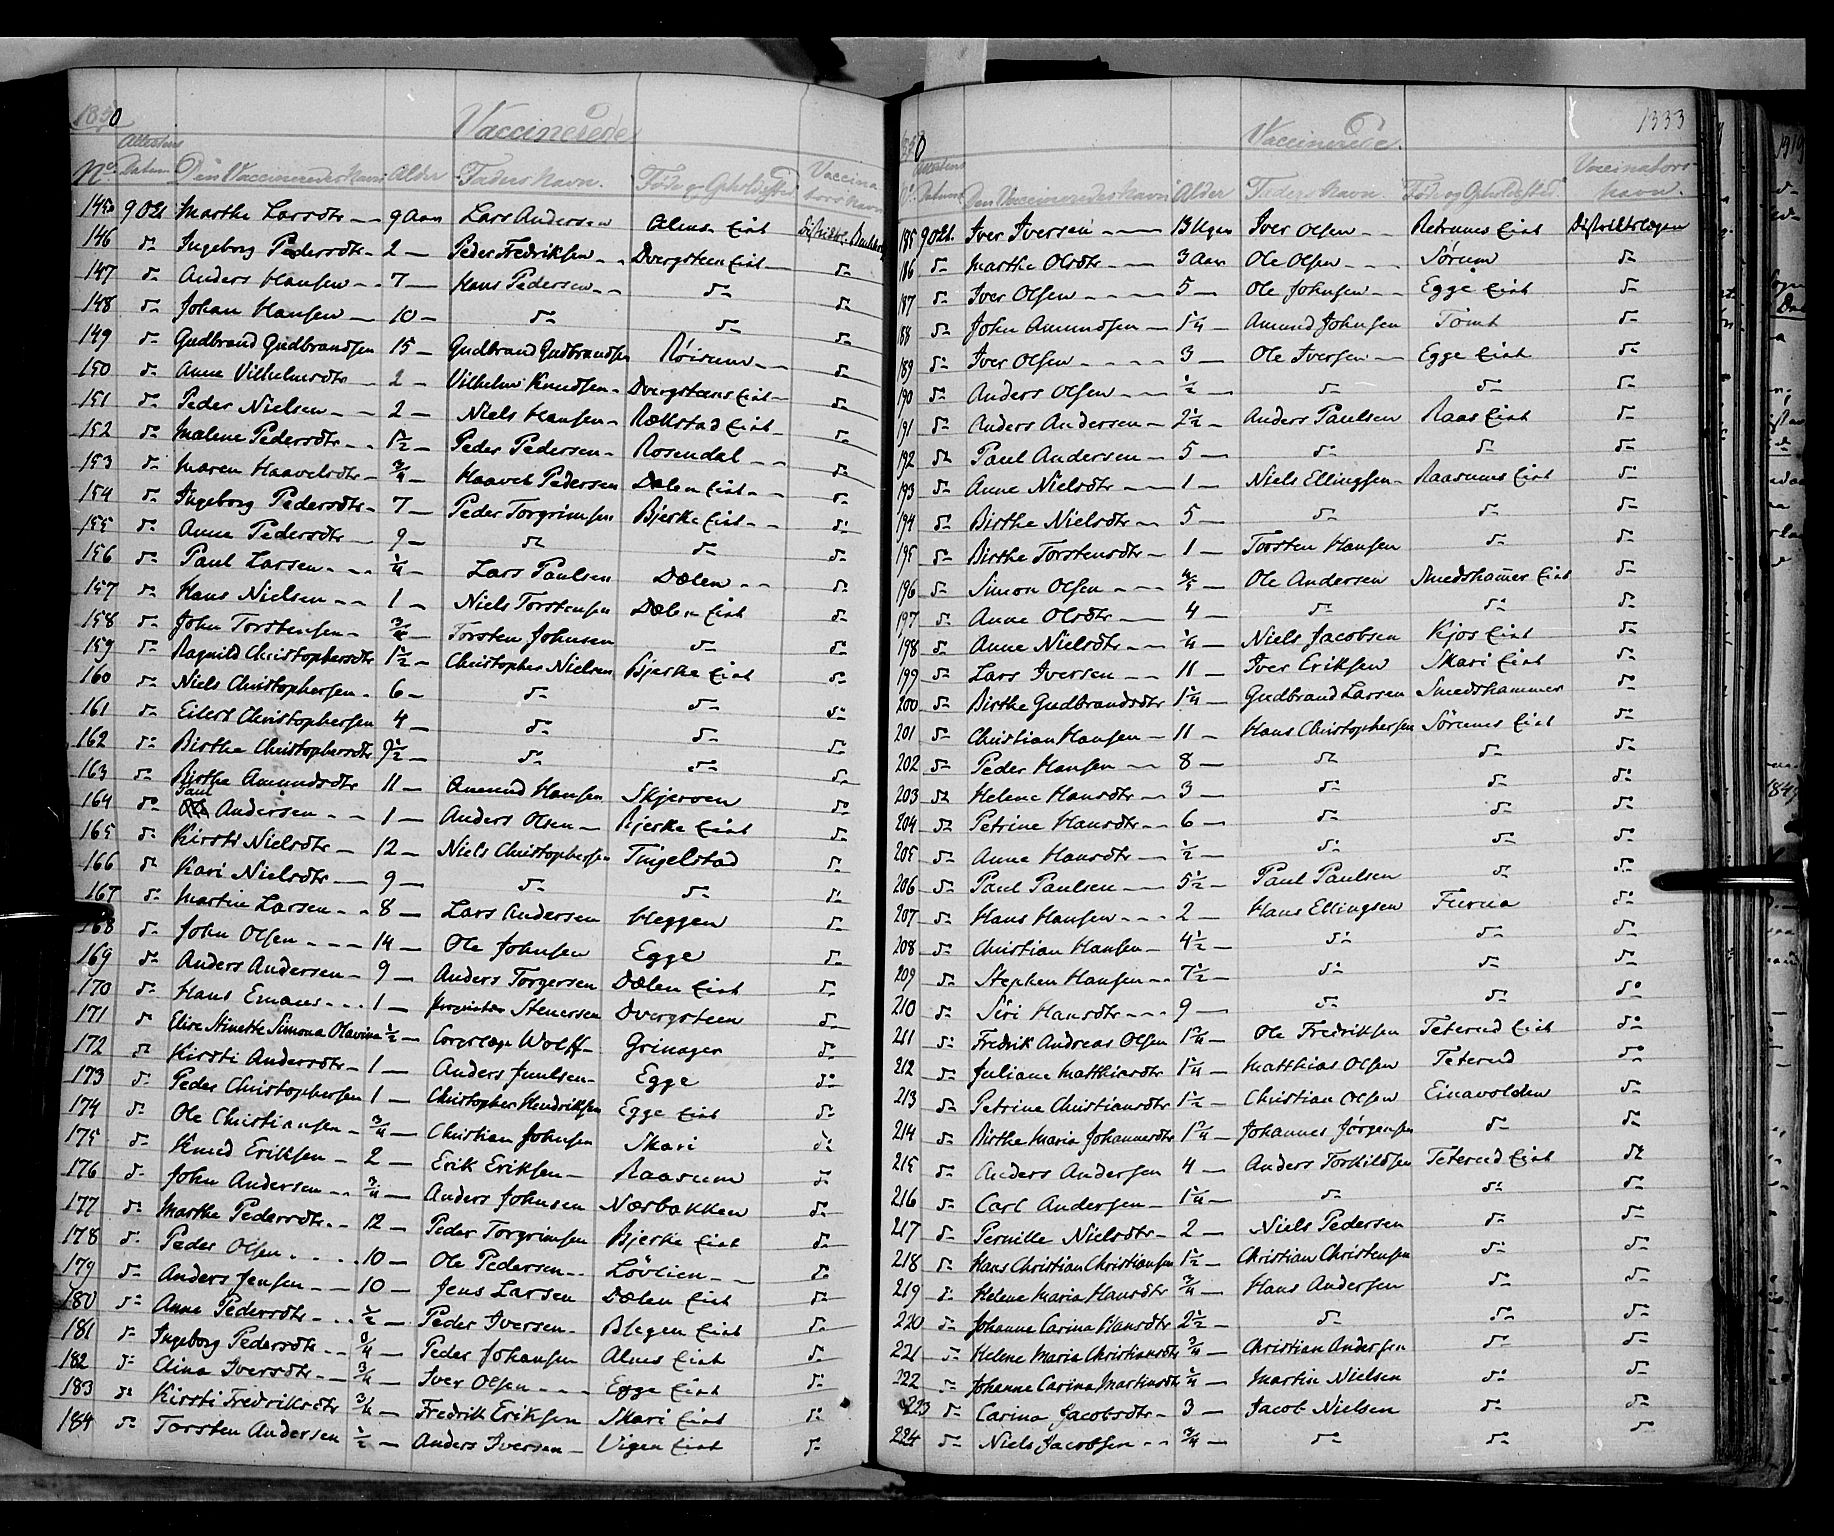 1850
Vaccinerede
No Attestens Datum Den Vaccineredes Navn Alder Faders Navn. Føde og Opholdssted Vaccina tors Navn
145 9 Oct Marthe Larsdtr 9 Aar Lars Andersen Alms Eiet
146 do Ingeborg Pedersdtr 2 Peder Fredriksen Dvergsteen Eiet do
147 do Anders Hansen 7 Hans Pedersen do do
148 do Johan Hansen 10 do do do
149 do Gudbrand Gudbrandsen 15 Gudbrand Gudbrandsen Røisum do
150 do Anne Vilhelmsdtr 2 Vilhelm Knudsen Dvergsteens Eiet do
151 do Peder Nielsen 2 Niels Hansen Rækstad Eiet do
152 do Malene Pedersdtr 1½ Peder Pedersen Rosendal do
153 do Maren Haavelsdtr ¾ Haavel Pedersen Dælen Eiet do
154 do Ingeborg Pedersdtr 7 Peder Torgrimsen Bjerke Eiet do
155 do Anne Pedersdtr 9 do do do
156 do Paul Larsen ¼ Lars Paulsen Dælen do
157 do Hans Nielsen 1 Niels Torstensen Dælen Eiet do
158 do John Torstensen ¾ Torsten Johnsen do do
159 do Ragnild Christophersdtr 1½ Christopher Nielsen Bjerke Eiet do
160 do Niels Christophersen 6 do do do
161 do Eilert Christophersen 4 do do do
162 do Birthe Christophersdtr 9½ do do do
163 do Birthe Amundsdtr 11 Amund Hansen Skjerven do
164 do Paul Andersen 1 Anders Olsen Bjerke Eiet do
165 do Kirsti Nielsdtr 12 Niels Christophersen Tingelstad do
166 do Kari Nielsdtr 9 do do do
167 do Martin Larsen 8 Lars Andersen Heggen do
168 do John Olsen 14 Ole Johnsen Egge do
169 do Anders Andersen 9 Anders Torgersen Dælen Eiet do
170 do Hans Emanu 1 Stenersen Dvergsteen do
171 do Elise Ninette Simona Olavina ½ Corpslæge Wolff Grinager do
172 do Kirsti Andersdtr 1 Anders Juulsen Egge do
173 do Peder Christophersen 1 Christopher Hendriksen Egge Eiet do
174 do Ole Christiansen ¾ Christian Johnsen Skari do
175 do Knud Eriksen 2 Erik Eriksen Raasum do
176 do John Andersen ¾ Anders Johnsen Næsbakken do
177 do Marthe Pedersdtr 12 Peder Torgrimsen Bjerke Eiet do
178 do Peder Olsen 10 Ole Pedersen Løvlien do
179 do Anders Jensen 10 Jens Larsen Dælen Eiet do
180 do Anne Pedersdtr ½ Peder Iversen Blegen Eiet do
181 do Ingeborg Pedersdtr ¾ Peder Johansen Alms Eiet do
182 do Elina Iversdtr ¾ Iver Olsen Egge Eiet do
183 do Kirsti Fredriksdtr ¾ Fredrik Eriksen Skari Eiet do
184 do Torsten Andersen ½ Anders Iversen Vigen Eiet do
1850
Vaccinerede.
1333
No Attestens Datum Den Vaccineredes Navn Alder Faders Navn. Føde og Opholdssted Vaccinators navn.
185 9 Oct. Iver Iversen 13 Uger Iver Olsen Eiet Districtslægen
186 do Marthe Olsdtr 3 Aar Ole Olsen Sørum do
187 do Iver Olsen 5 Ole Johnsen Egge Eiet do
188 do John Amundsen 1¼ Amund Johnsen Tømt do
189 do Iver Olsen 3 Ole Iversen Egge Eiet do
190 do Anders Olsen ½ do do do
191 do Anders Andersen 2½ Anders Paulsen Raas Eiet do
192 do Paul Andersen 5 do do do
193 do Anne Nielsdtr 1 Niels Ellingsen Raasums Eiet do
194 do Birthe Nielsdtr 5 do do do
195 do Birthe Torstensdtr 1 Torsten Hansen do do
196 do Simon Olsen Ole Andersen Smedshamer Eiet do
197 do Anne Olsdtr 4 do do do
198 do Anne Nielsdtr ¼ Niels Jacobsen Kjos Eiet do
199 do Lars Iversen 11 Iver Eriksen Skari Eiet do
200 do Birthe Gudbrandsdtr 1¼ Gudbrand Larsen Smedshammer do
201 do Christian Hansen 11 Hans Christophersen Sørums Eiet do
202 do Peder Hansen 8 do do do
203 do Helene Hansdtr 3 do do do
204 do Petrine Hansdtr 6 do do do
205 do Anne Hansdtr ½ do do do
206 do Paul Paulsen 5½ Paul Paulsen do do
207 do Hans Hansen 2 Hans Ellingsen Furua do
208 do Christian Hansen 4½ do do do
209 do Stephen Hansen 7½ do do do
210 do Siri Hansdtr 9 do do do
211 do Fredrik Andreas Olsen 1¾ Ole Fredriksen Teterud Eiet do
212 do Juliane Matthiasdtr 1¼ Matthias Olsen Teterud do
213 do Petrine Christiansdtr 1½ Christian Olsen Einavolden do
214 do Birthe Maria Johannesdtr 1¾ Johannes Jørgensen do do
215 do Anders Andersen 4 Anders Torkildsen Teterud Eiet do
216 do Carl Andersen 1¼ do do do
217 do Pernille Nielsdtr 2 Niels Pedersen do do
218 do Hans Christian Christiansen 1½ Christian Christensen do do
219 do Helene Maria Hansdtr ¾ Hans Andersen do do
220 do Johanne Carina Hansdtr 2½ do do do
221 do Helene Maria Christiansdtr ¾ Christian Andersen do do
222 do Johanne Carina Martinsdtr ¼ Martin Nielsen do do
223 do Carina Jacobsdtr 3 Jacob Nielsen do do
224 do Niels Jacobsen ¾ do do do